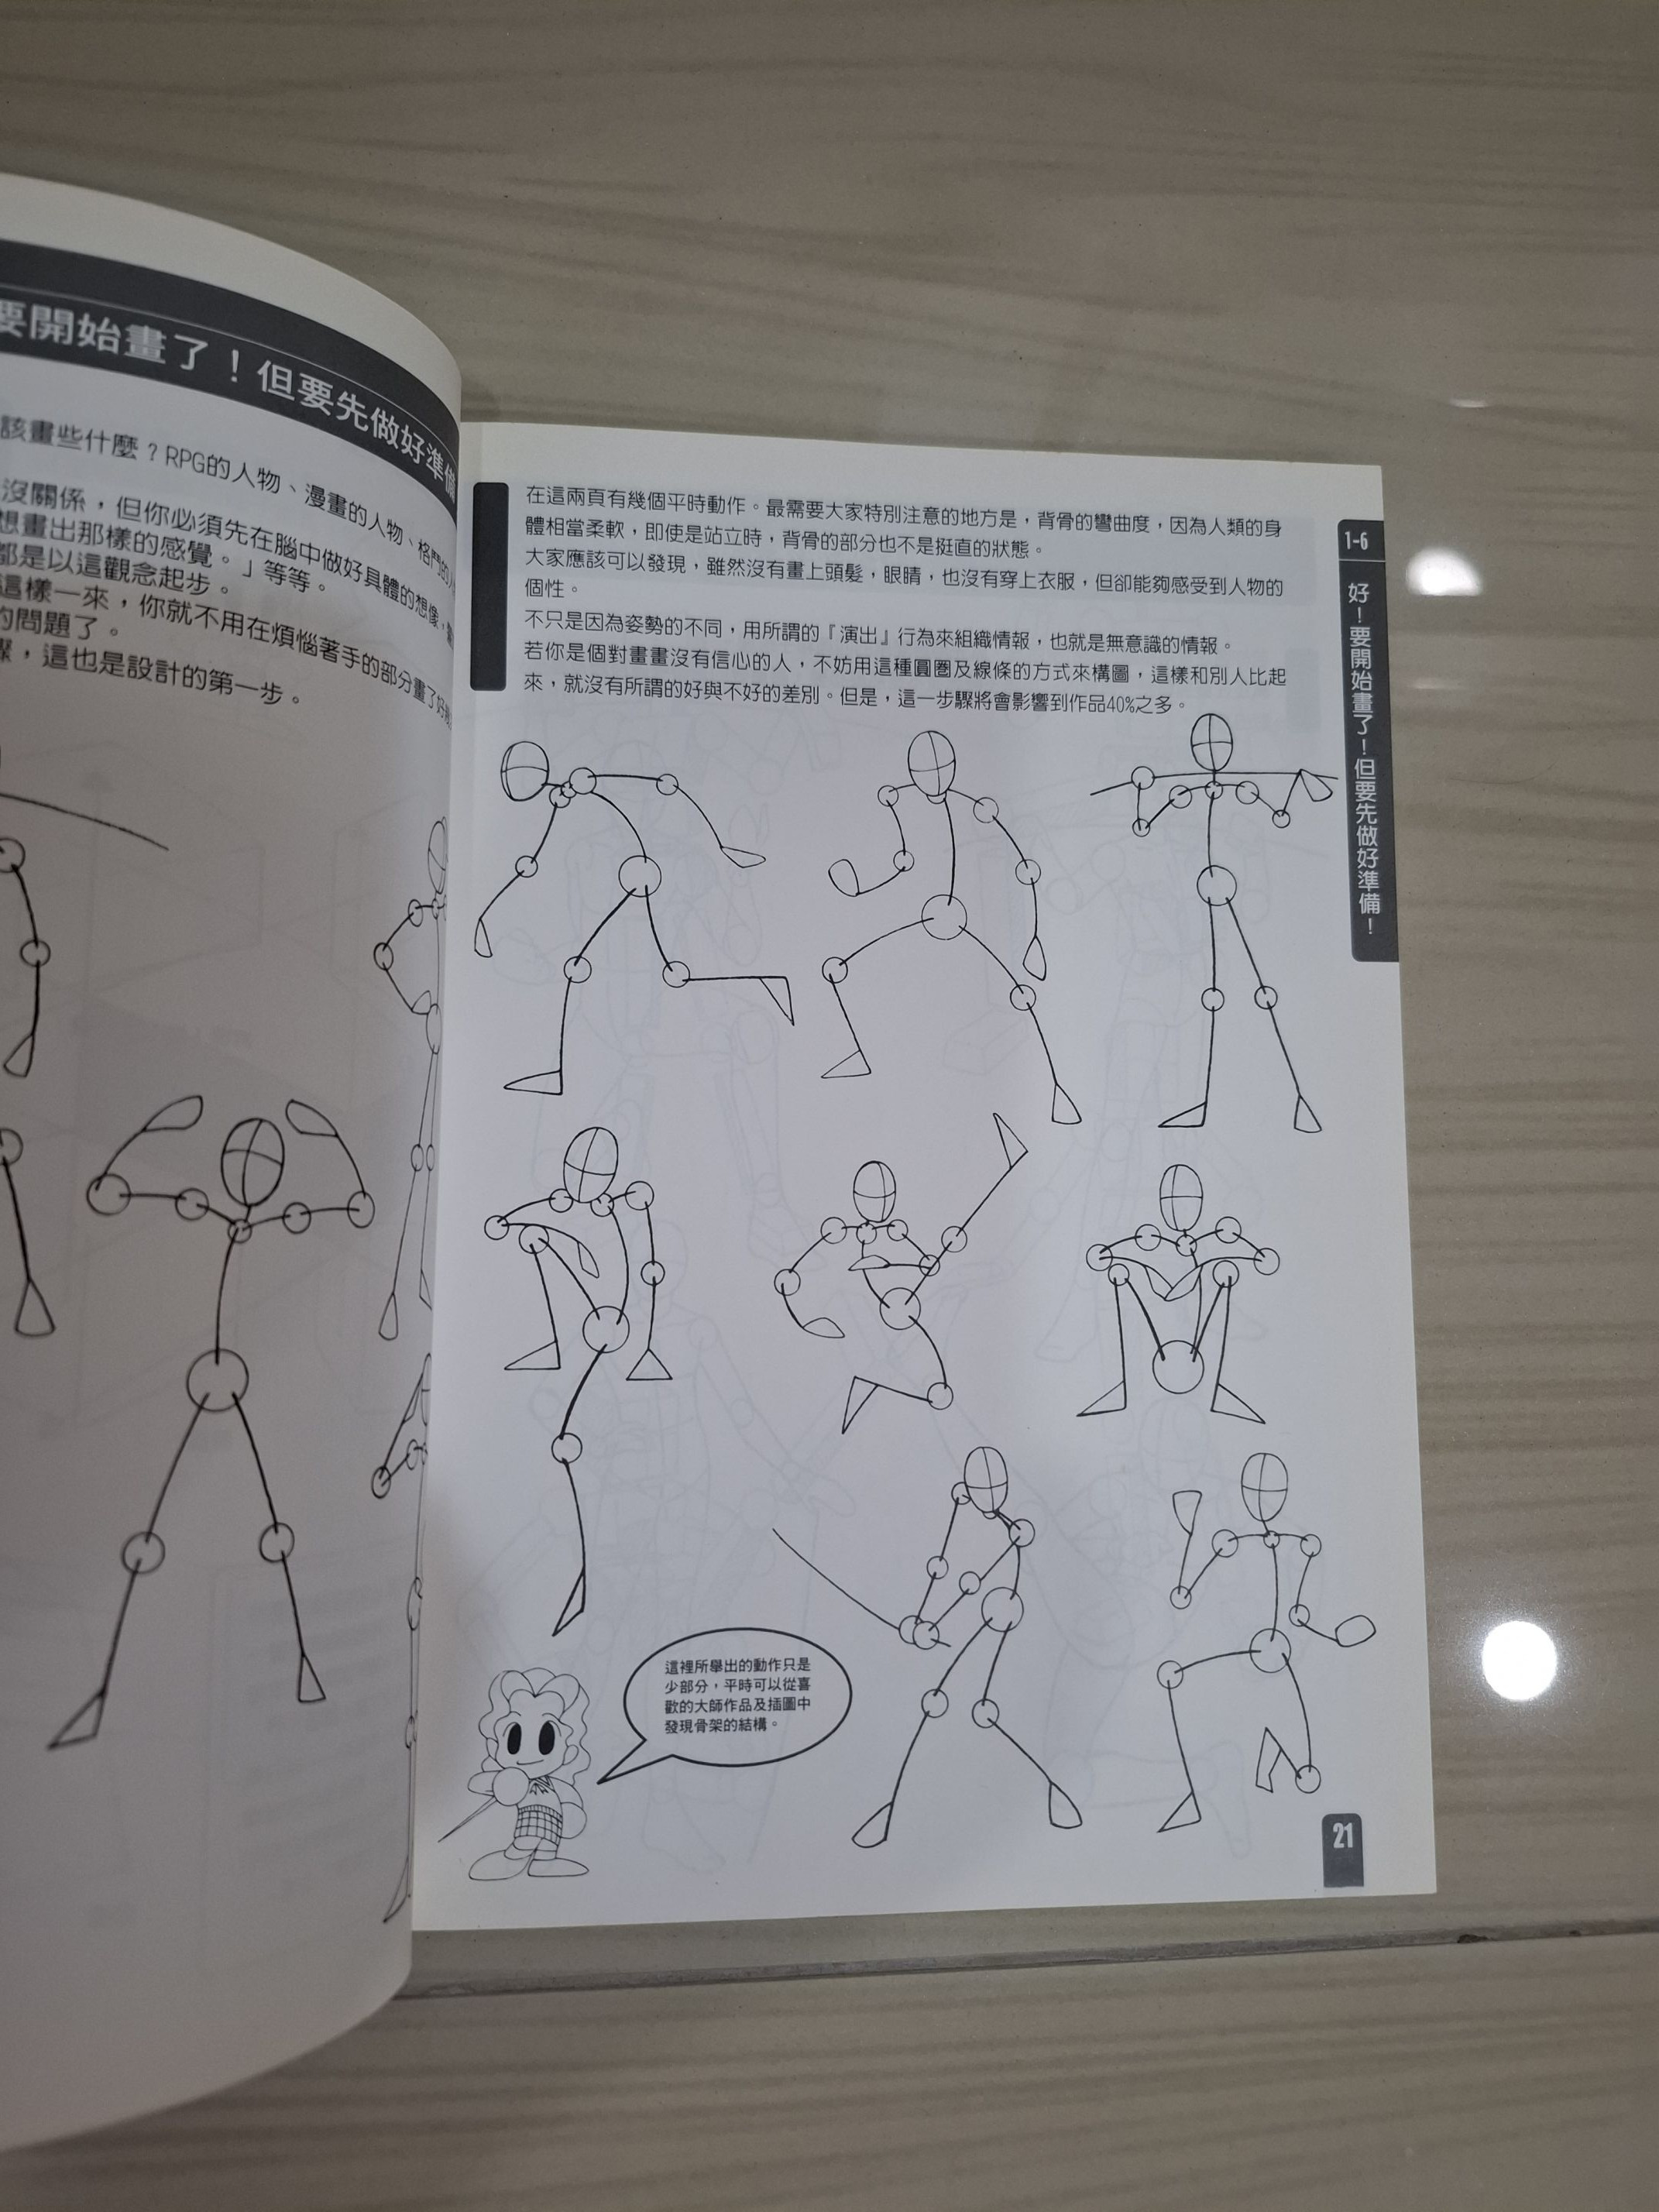 要開始畫了！但要先做好準備
該畫些什麼？RPG的人物、漫畫的人物、格鬥的
沒關係，但你必須先在腦中做好具體的想像，
想畫出那樣的感覺。」等等。
都是以這觀念起步。
這樣一來，你就不用在煩惱著手的部分畫了好
的問題了。
驟，這也是設計的第一步。
在這兩頁有幾個平時動作。最需要大家特別注意的地方是，背骨的彎曲度，因為人類的身
體相當柔軟，即使是站立時，背骨的部分也不是挺直的狀態。
大家應該可以發現，雖然沒有畫上頭髮，眼睛，也沒有穿上衣服，但卻能夠感受到人物的
個性。
不只是因為姿勢的不同，用所謂的『演出』行為來組織情報，也就是無意識的情報。
若你是個對畫畫沒有信心的人，不妨用這種圓圈及線條的方式來構圖，這樣和別人比起
來，就沒有所謂的好與不好的差別。但是，這一步驟將會影響到作品40%之多。
1-6
好！要開始畫了！但要先做好準備！
這裡所舉出的動作只是
少部分，平時可以從喜
歡的大師作品及插圖中
發現骨架的結構。
21